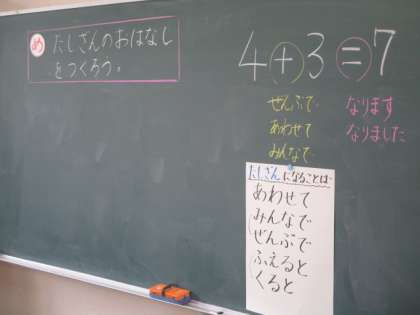 め
たしざんのおはなし
をつくろう。
4+3=7
ぜんぶで
あわせて
みんなで
なります
なりました
たしざんになることば
あわせて
みんなで
ぜんぶで
ふえると
くると